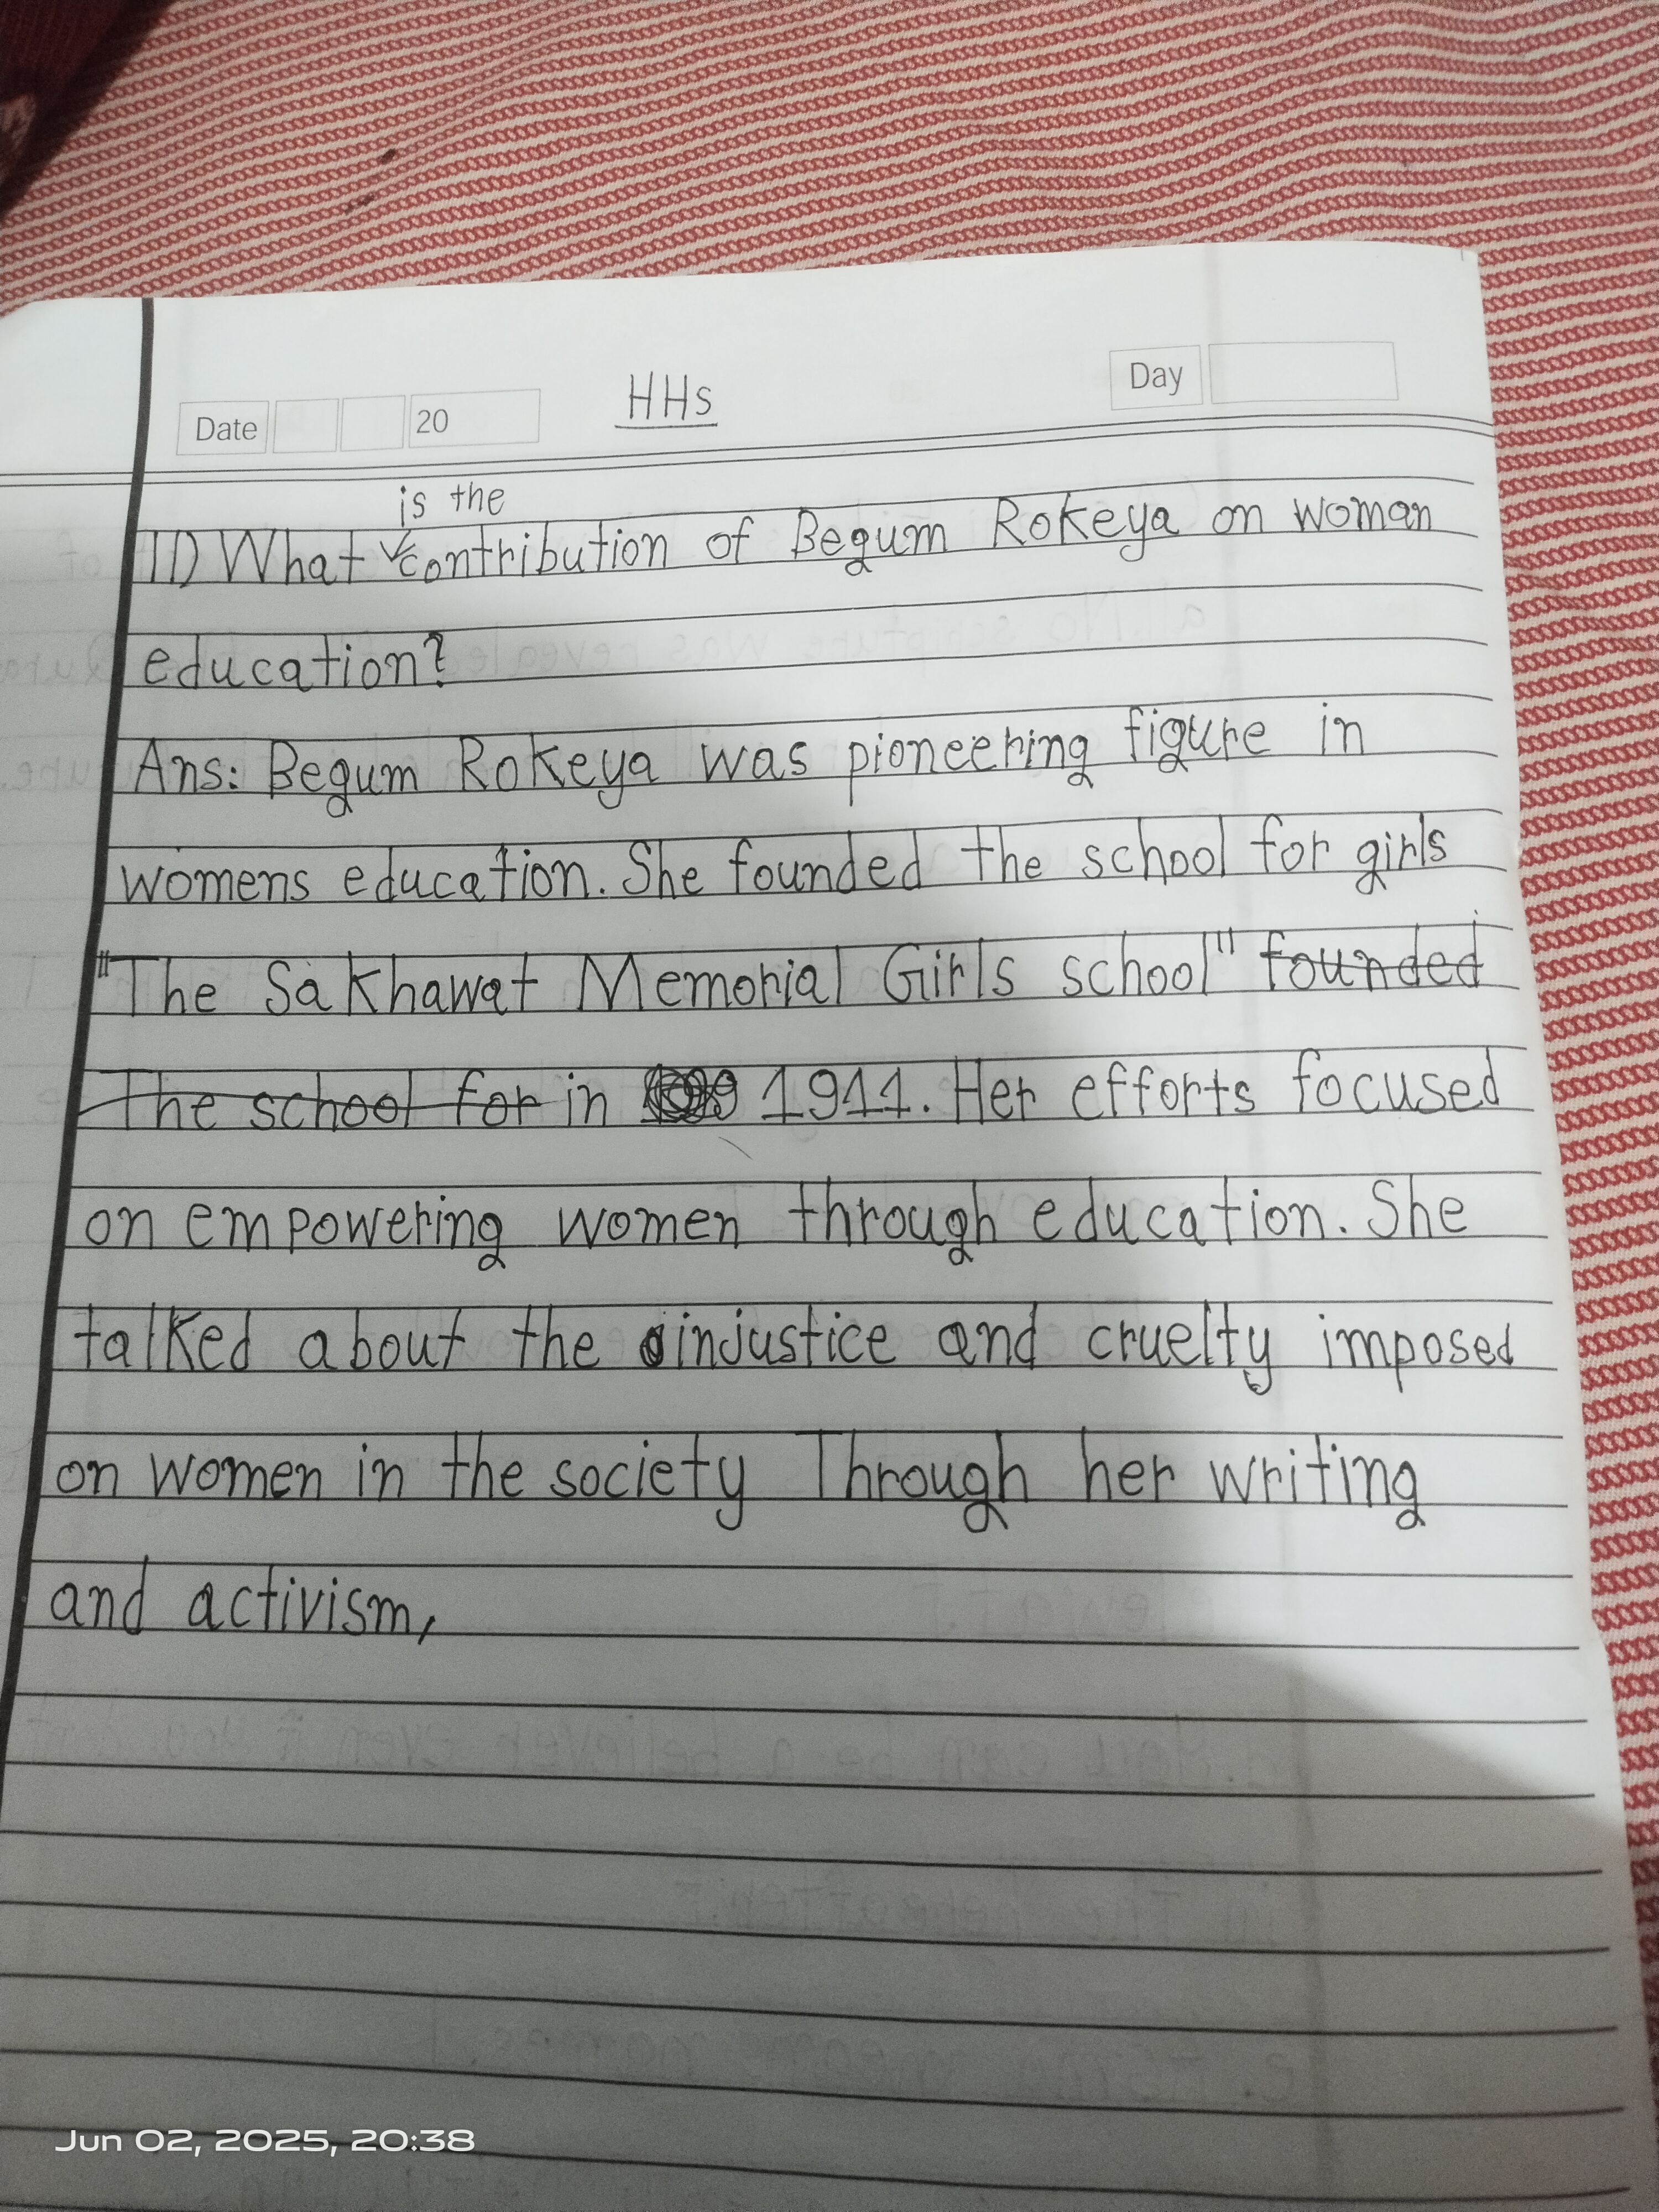 Date 20 HHs Day
is the
1) What contribution of Begum Rokeya on woman
education?
Ans: Begum Rokeya was pioneering figure in
womens education. She founded the school for girls
"The Sakhawat Memorial Girls school" founded
The school for in 1911. Her efforts focused
on empowering women through education. She
talked about the injustice and cruelty imposed
on women in the society Through her writing
and activism,
Jun 02, 2025, 20:38